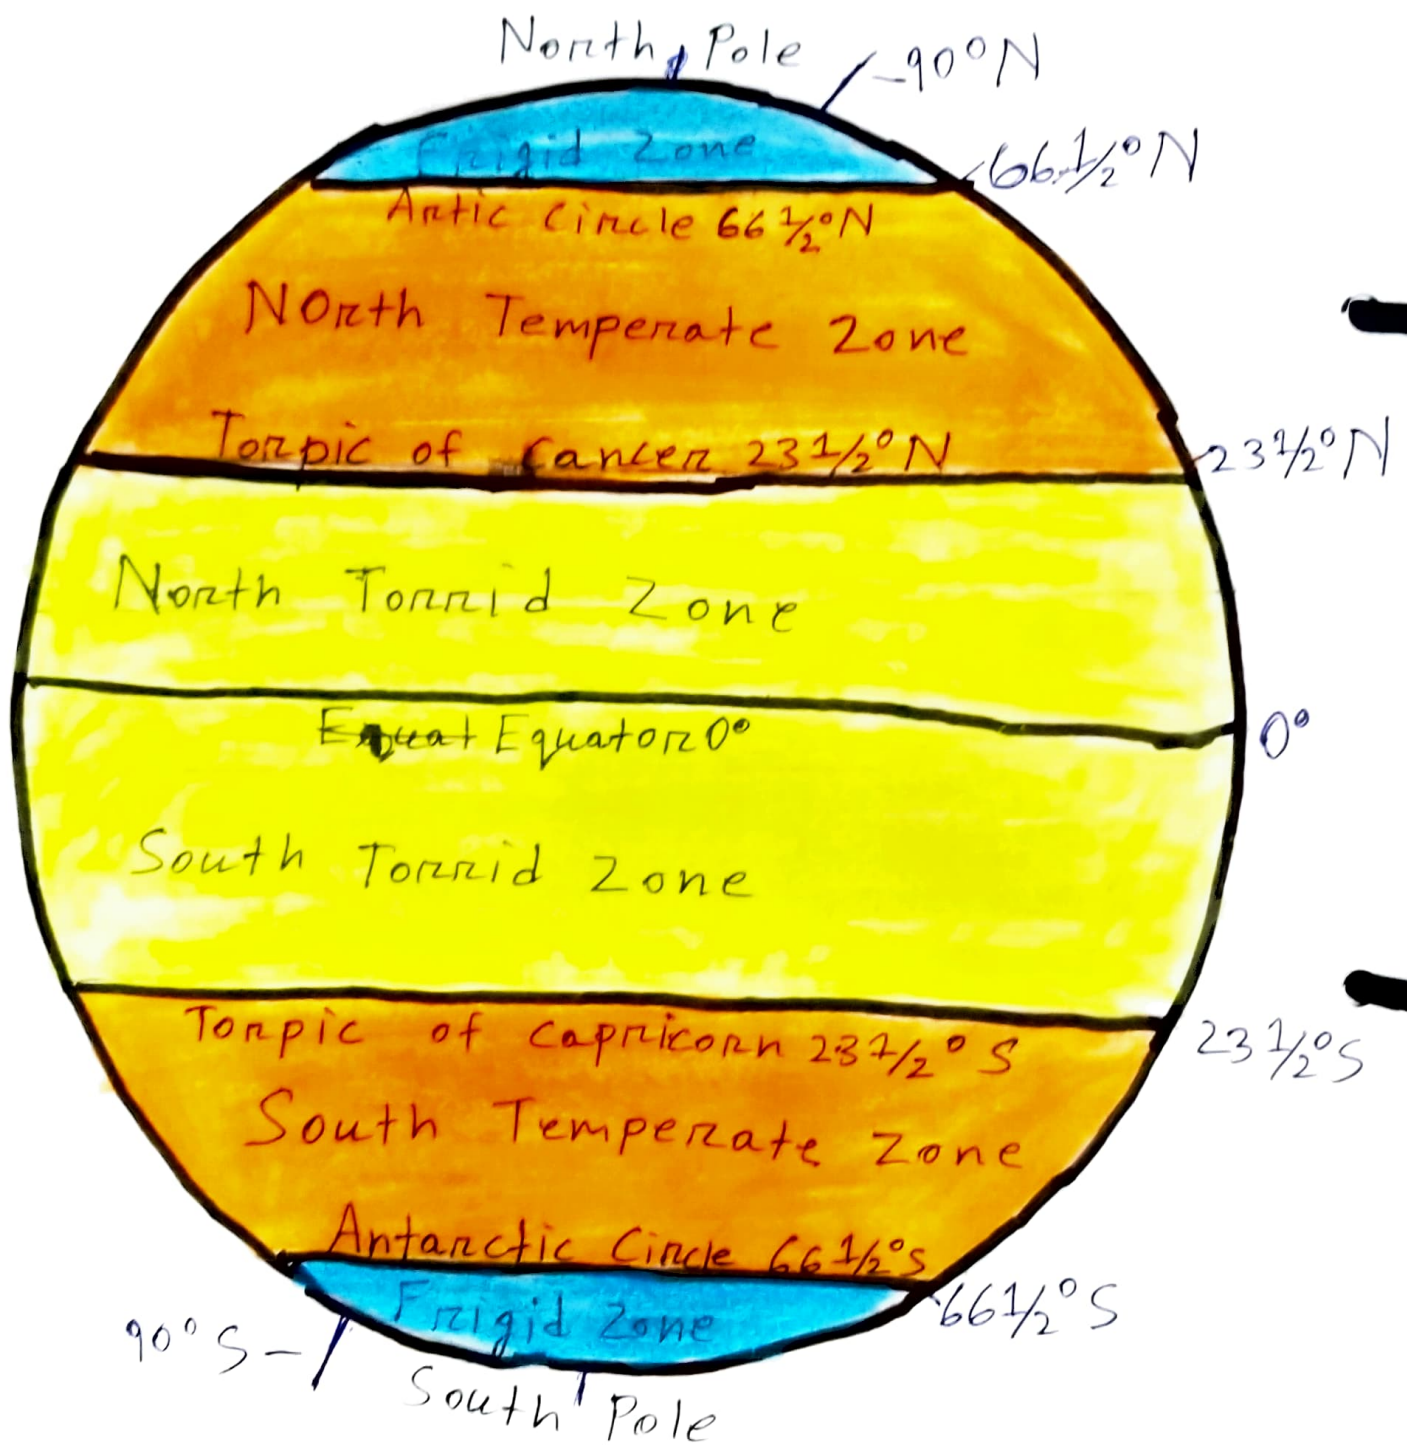 North Pole
90°N
Frigid Zone
66 1/2°N
Artic Circle 66 1/2°N
North Temperate Zone
Torpic of Cancer 23 1/2°N
23 1/2°N
North Torrid Zone
Equat Equator 0°
0°
South Torrid Zone
Torpic of Capricorn 23 1/2° S
23 1/2°S
South Temperate Zone
Antarctic Circle 66 1/2°S
66 1/2°S
Frigid Zone
90°S
South Pole